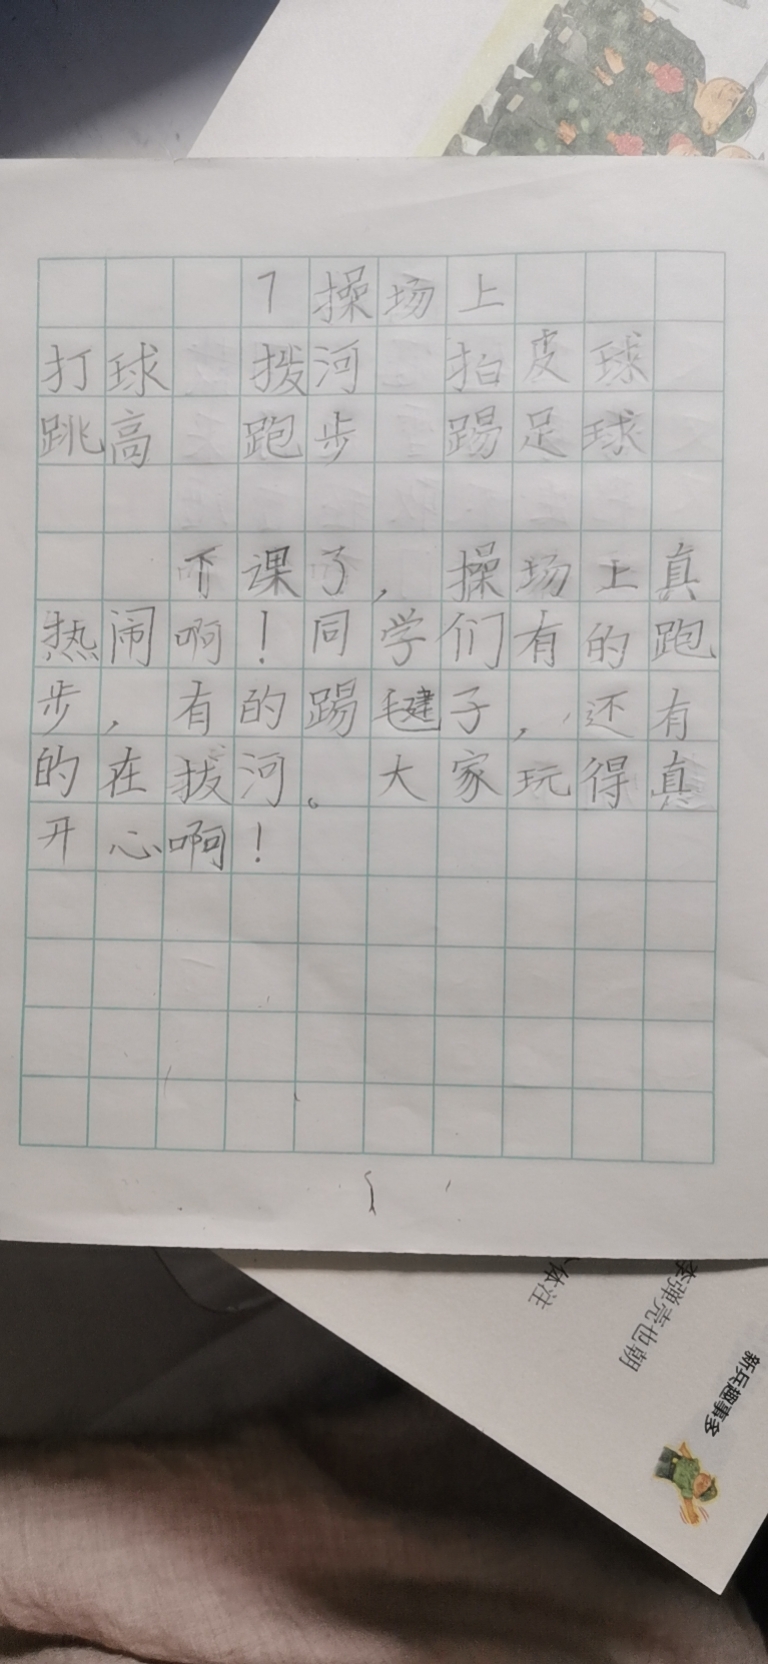 7 操场上
打球 拨河 拍皮球
跳高 跑步 踢足球
下课了，操场上真
热闹啊！同学们有的跑
步，有的踢毽子，还有
的在拔河。大家玩得真
开心啊！
新兵趣事多